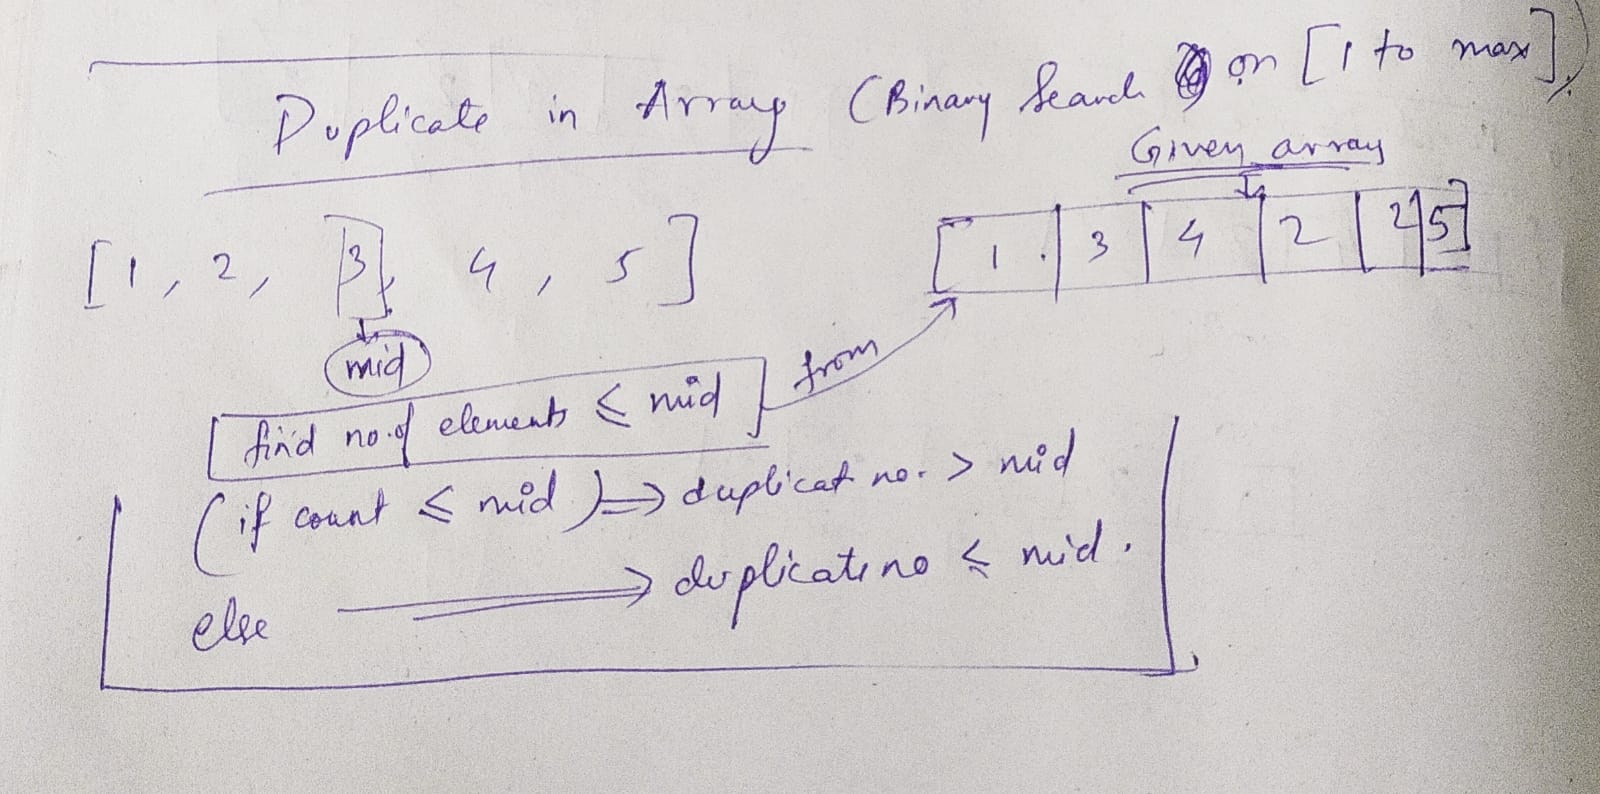 Duplicate in Array (Binary Search on [1 to max])
Given array
[1, 2, 3, 4, 5]
[1 . 3 4 2 2 5]
mid
find no. of elements ≤ mid
from
(if count ≤ mid) ⇒ duplicat no. > mid
else ⇒ duplicate no ≤ mid.